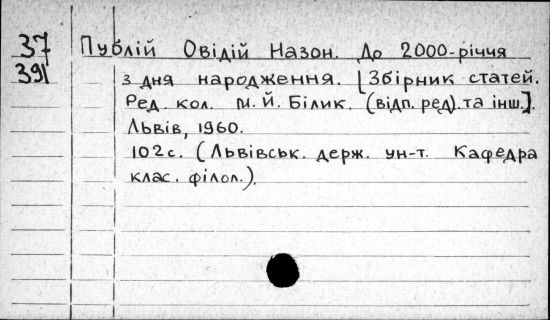 37 Публій Овідій Назон. До 2000-річчя
391 з дня народження. [Збірник статей.
Ред. кол. М.Й. Білик. (відп. ред). та інш.].
Львів, 1960.
102 с. (Львівськ. держ. ун-т. Кафедра
клас. філол.).